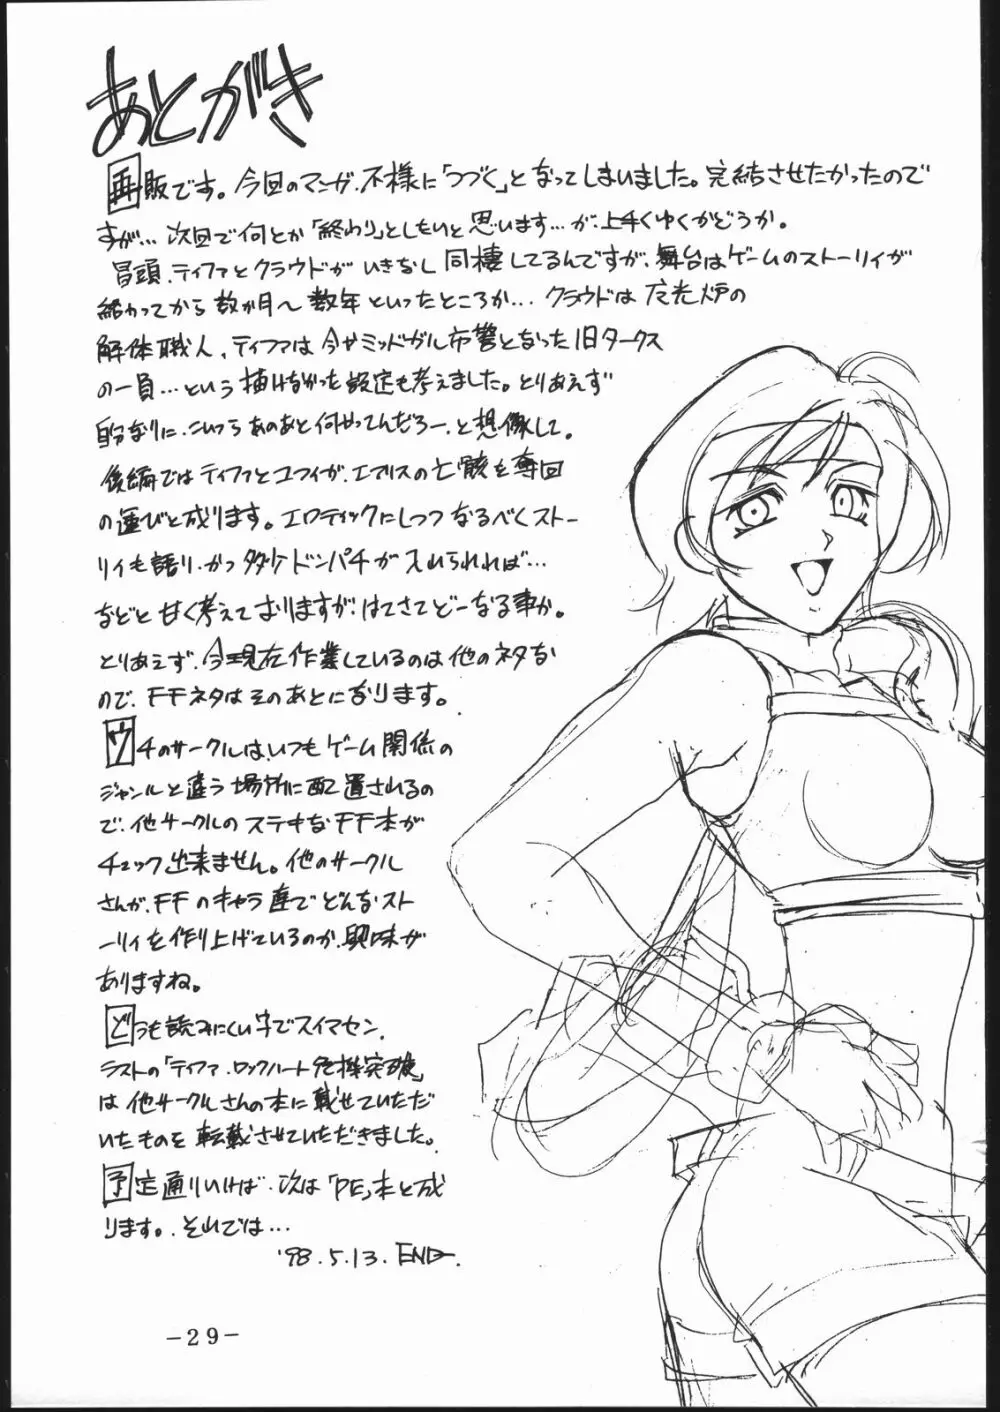 あとがき
再販です。今回のマンガ、不様に「つづく」となってしまいました。完結させたかったので
すが… 次回で何とか「終わり」としたいと思います…が、上手くゆくかどうか。
冒頭、ティファとクラウドがいきなし同棲してるんですが、舞台はゲームのストーリィが
終わってから数か月〜数年といったところか… クラウドは魔光炉の
解体職人、ティファは今やミッドガル市警となった旧タークス
の一員…という描けなかった設定も考えました。とりあえず
自分なりに、こいつらあのあと何やってんだろー、と想像して。
後編ではティファとユフィが、エアリスの亡骸を奪回
の運びと成ります。エロティックにしつつなるべくストー
リィも語り、かつ
ドンパチが入れられれば…
などと甘く考えておりますが、はてさてどーなる事か。
とりあえず、今現在作業しているのは他のネタな
ので、FFネタはそのあとになります。
ウチのサークルは、いつもゲーム関係の
ジャンルと違う場所に配置されるの
で、他サークルのステキなFF本が
チェック出来ません。他のサークル
さんが、FFのキャラ達でどんなスト
ーリィを作り上げているのか、興味が
ありますね。
どうも読みにくい字でスイマセン。
ラストの「ティファ・ロックハート危機突破」
は他サークルさんの本に載せていただ
いたものを転載させていただきました。
予定通りいけば、次は「PE」本と成
ります。それでは…
'98.5.13. END.
-29-